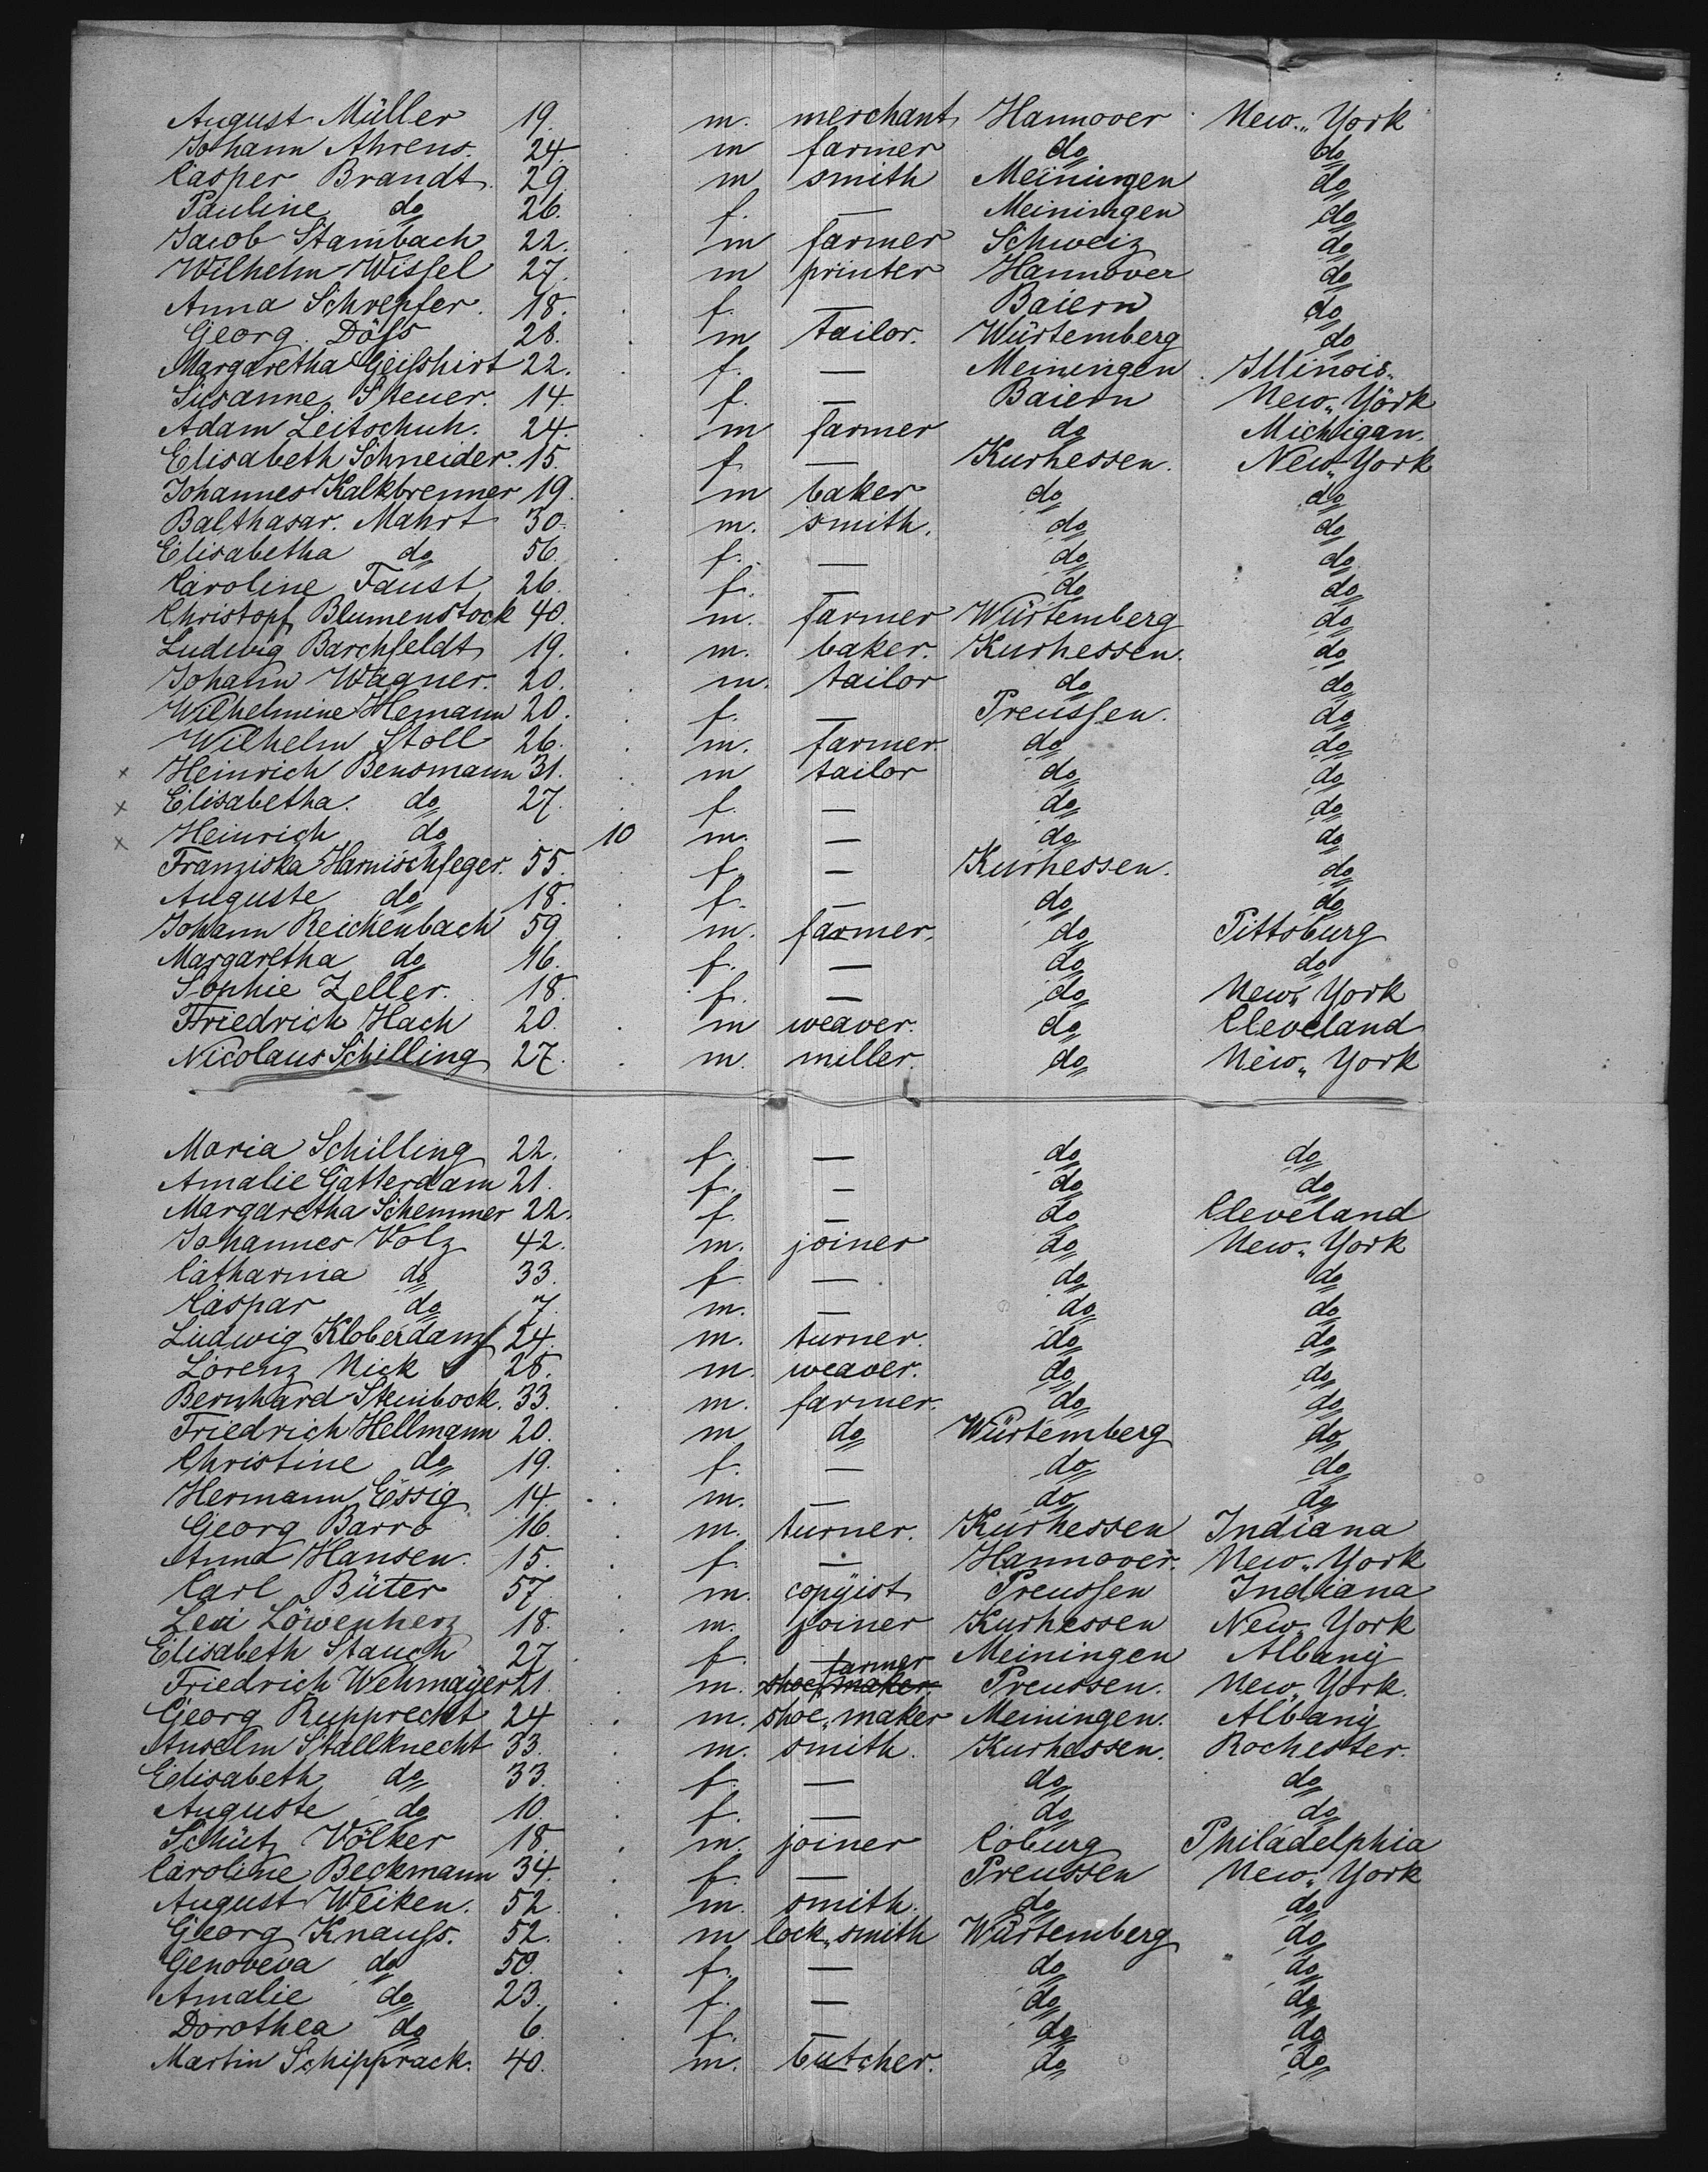 August Müller 19. m. merchant Hannover New„York
Johann Ahrens. 24. m farmer do do
Casper Brandt. 29. m smith Meiningen do
Pauline do 26. f. — Meiningen do
Jacob Stambach 22. m farmer Schweiz do
Wilhelm Wissel 27. m printer Hannover do
Anna Schrepfer. 18. f. — Baiern do
Georg Döss 28. m tailor. Würtemberg do
Margaretha Geisshirt 22. f. — Meiningen Illinois.
Susanne Steuer. 14. f. — Baiern New„York
Adam Leitschuh. 24. m farmer do Michigan.
Elisabeth Schneider. 15. f. — Kurhessen. New„York
Johannes Kalkbrenner 19. m baker do do
Balthasar. Mahrt 30. m. smith. do do
Elisabetha do 56. f. — do do
Caroline Faust 26. f. — do do
Christopf Blumenstock 40. m. farmer Würtemberg do
Ludwig Barchfeldt 19. m. baker. Kurhessen. do
Johann Wagner. 20. m. tailor do do
Wilhelmine Hemann 20. f. — Preussen. do
Wilhelm Stoll 26. m. farmer do do
x Heinrich Bensmann 31. m tailor do do
x Elisabetha. do 27. f. — do do
x Heinrich do 10 m. — do do
Franziska Harnischfeger. 55. f. — Kurhessen. do
Auguste do 18. f. — do do
Johann Reichenbach 59 m. farmer. do Pittsburg
Margaretha do 16. f. — do do
Sophie Zeller. 18. f. — do New„York
Friedrich Hach 20. m weaver. do Cleveland
Nicolaus Schilling 27. m. miller. do New„York
Maria Schilling 22. f. — do do
Amalie Gatterdam 21. f. — do do
Margaretha Schemmer 22. f. — do Cleveland
Johannes Volz 42. m. joiner do New„York
Catharina do 33. f. — do do
Caspar do 7. m. — do do
Ludwig Kloberdanz 24. m. turner. do do
Lorenz Nick 28. m. weaver. do do
Bernhard Steinbock. 33. m. farmer. do do
Friedrich Hellmann 20. m do Würtemberg do
Christine do 19. f. — do do
Hermann Essig 14. m. — do do
Georg Barro 16. m. turner. Kurhessen Indiana
Anna Hansen. 15. f. — Hannover. New„York
Carl Büter 57 m. copyist Preussen Indiana
Levi Löwenherz 18. m. joiner Kurhessen New„York
Elisabeth Stauch 27 f. — Meiningen Albany
Friedrich Wehmayer 21. m. shoe„maker. farmer Preussen. New„York.
Georg Rupprecht 24 m. shoe„maker Meiningen. Albany
Anselm Stallknecht 33. m. smith. Kurhessen. Rochester.
Elisabeth do 33. f. — do do
Auguste do 10. f. — do do
Schütz Völker 18. m. joiner Coburg Philadelphia
Caroline Beckmann 34. f. — Preussen New„York
August Weiken. 52. m. smith. do do
Georg Knauss. 52. m lock„smith Würtemberg do
Genoveva do 50. f. — do do
Amalie do 23. f. — do do
Dorothea do 6. f. — do do
Martin Schipprack. 40. m. butcher. do do